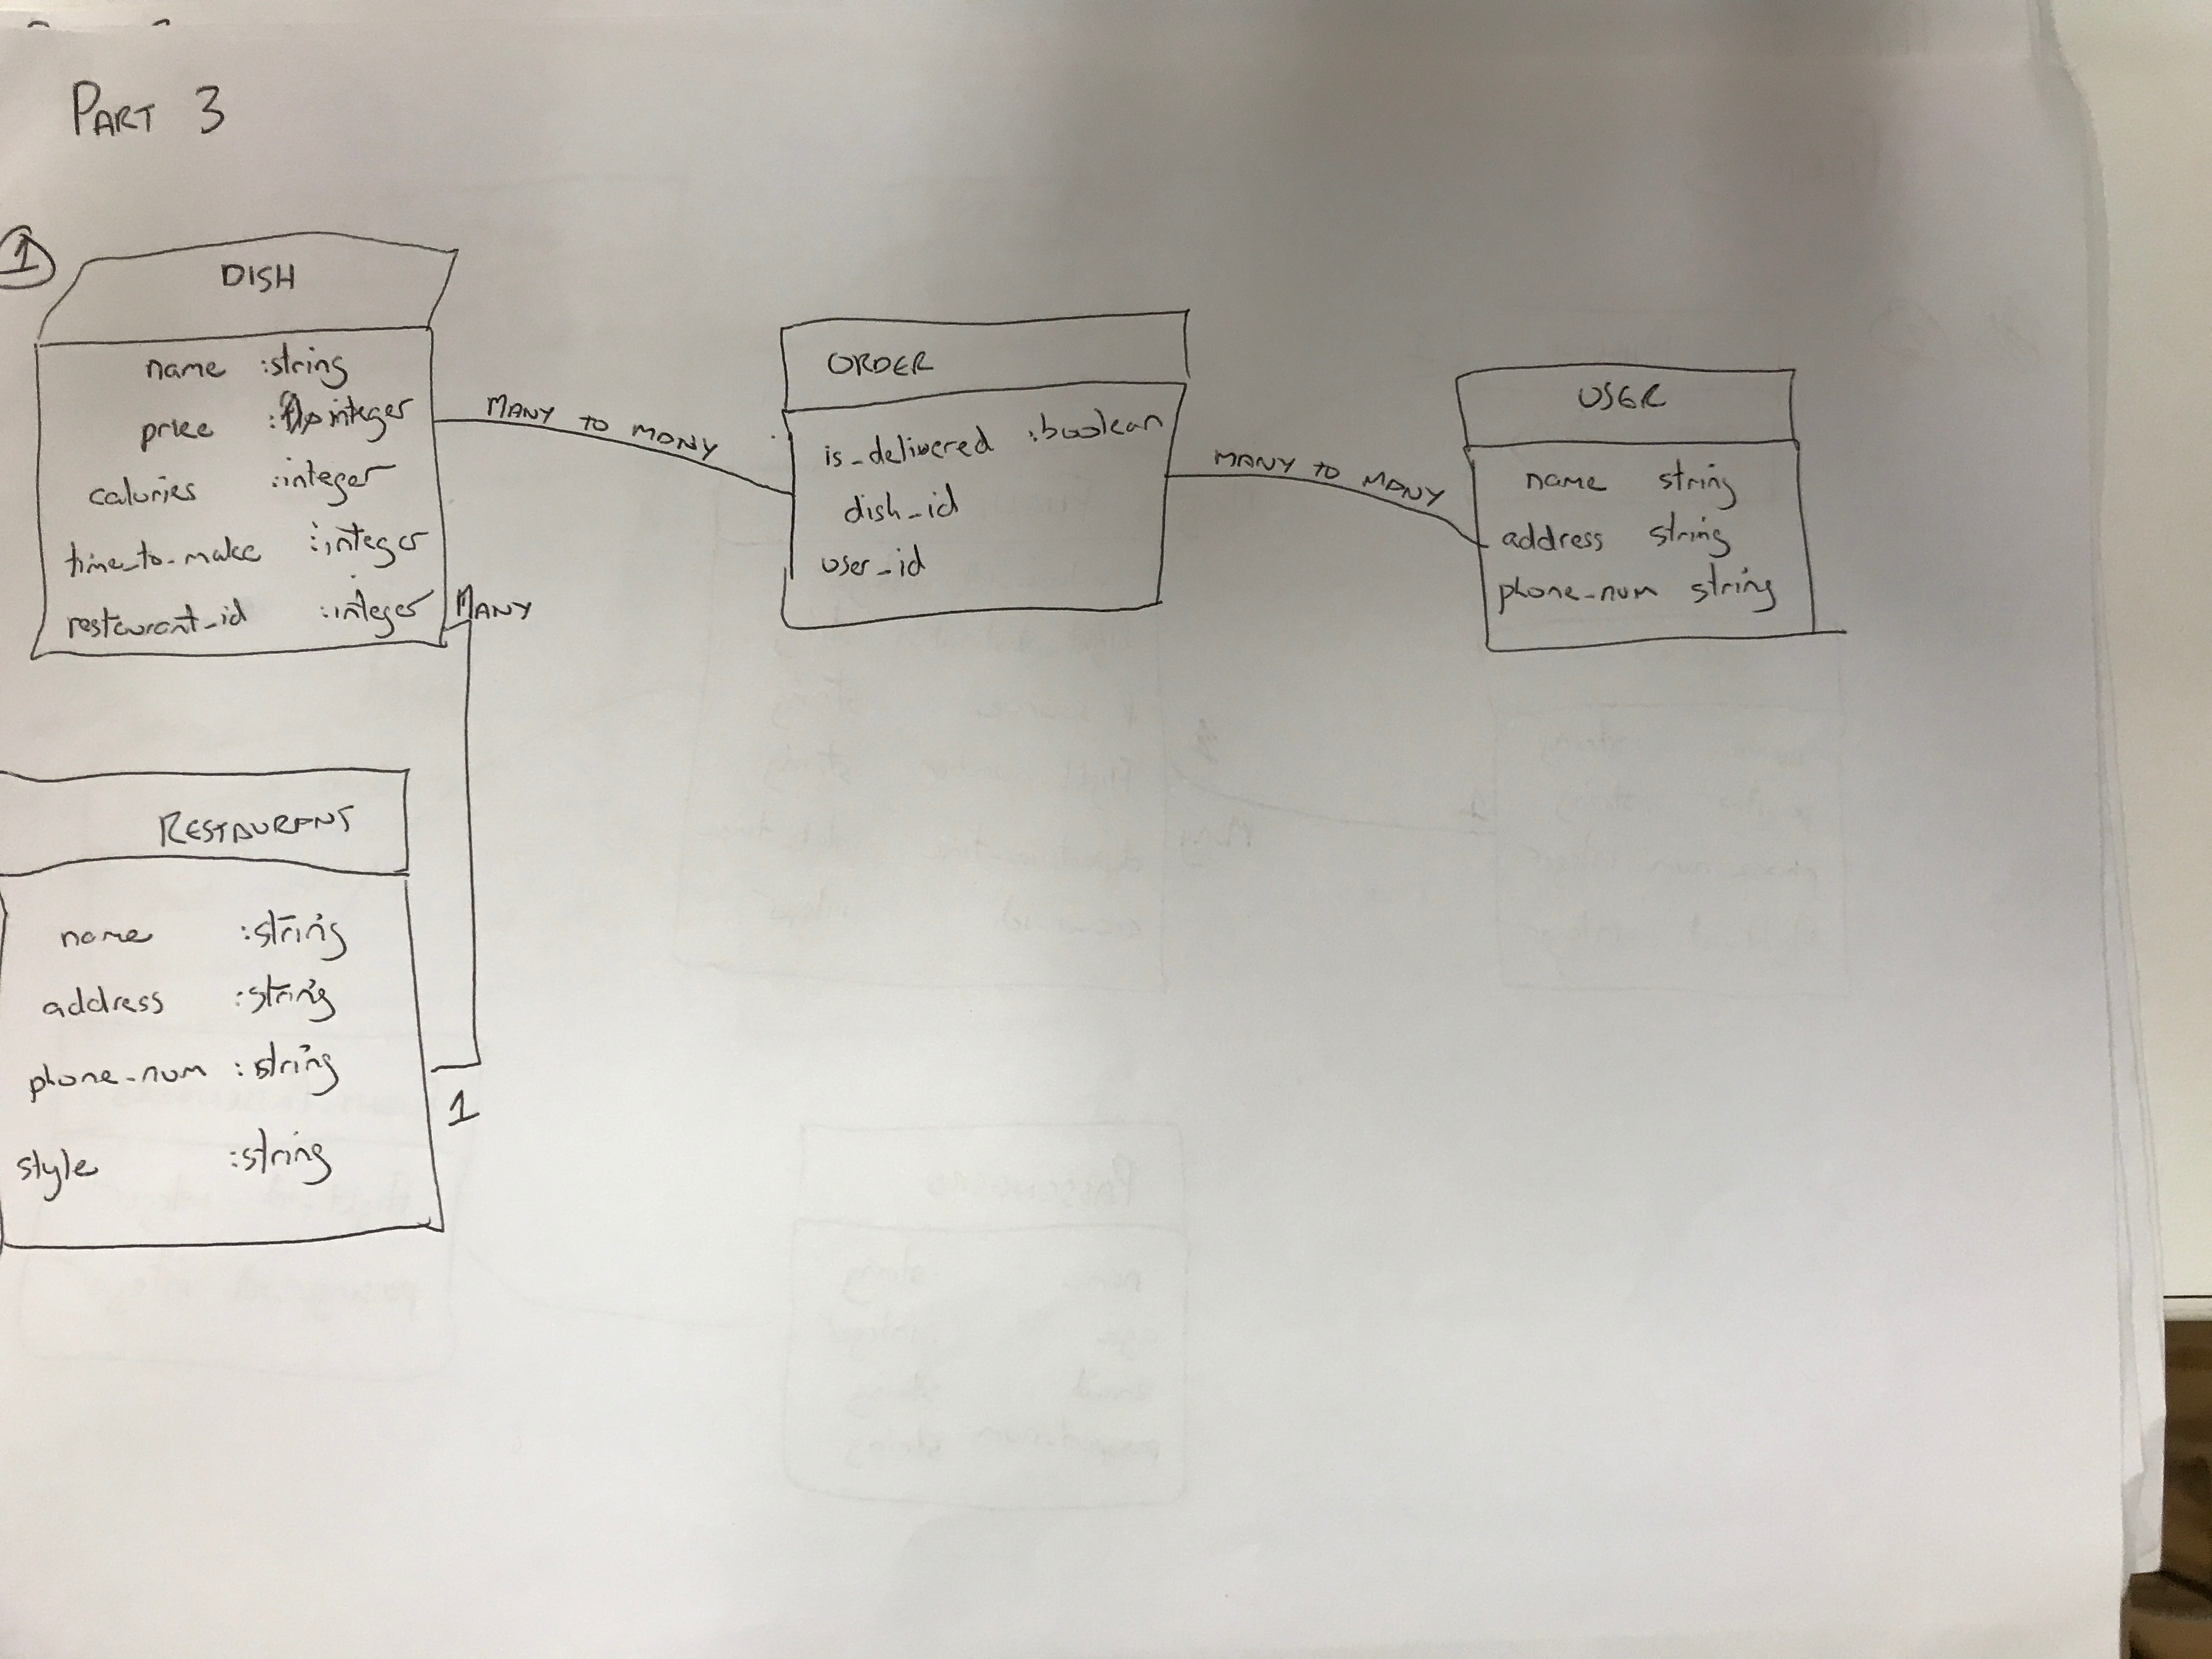 PART 3
1
DISH
name :string
price : integer
calories :integer
time_to_make :integer
restaurant_id :integer
MANY TO MANY
ORDER
is_delivered :boolean
dish_id
user_id
MANY TO MANY
USER
name string
address string
phone_num string
MANY
1
RESTAURANT
name :string
address :string
phone_num : string
style :string